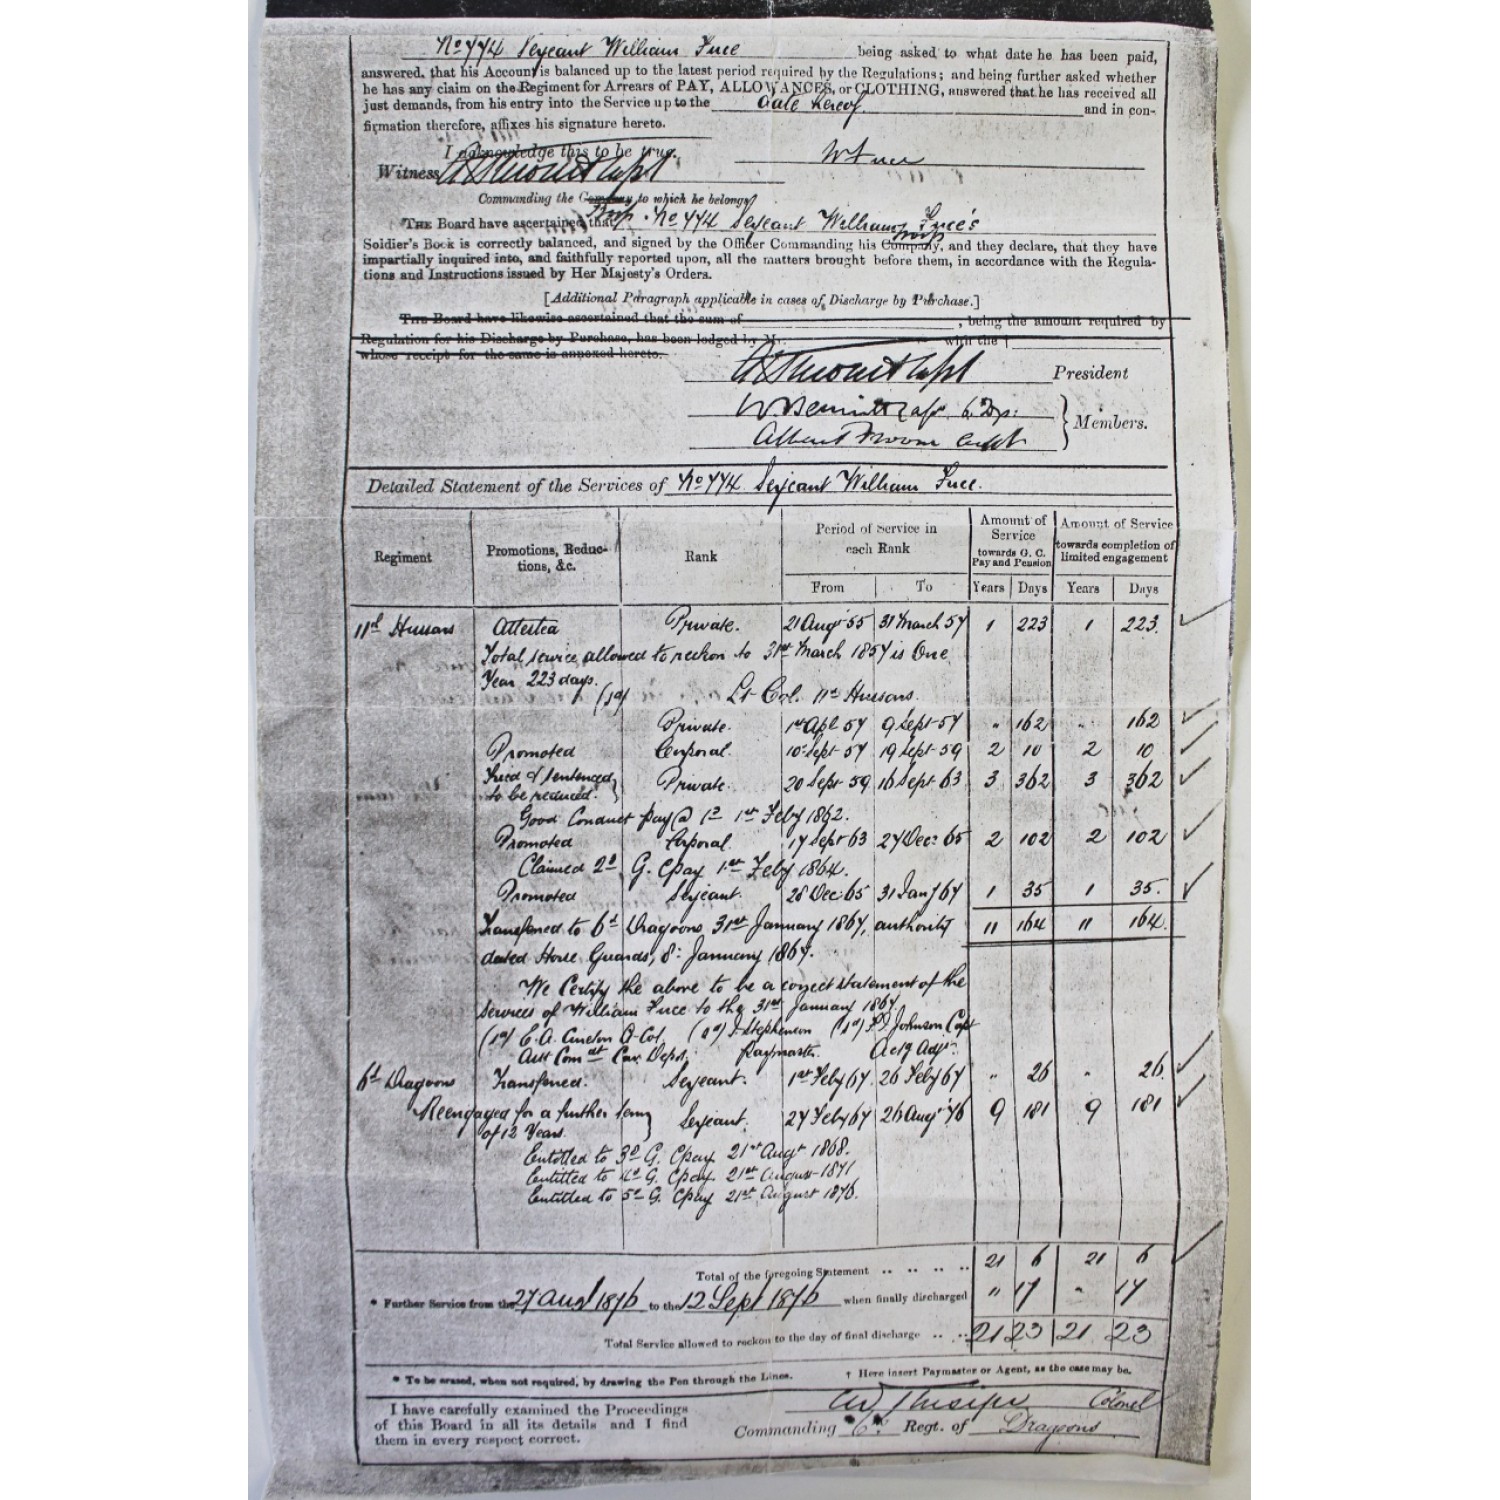 No 774 Serjeant William Fuce being asked to what date he has been paid,
answered, that his Account is balanced up to the latest period required by the Regulations; and being further asked whether
he has any claim on the Regiment for Arrears of PAY, ALLOWANCES, or CLOTHING, answered that he has received all
just demands, from his entry into the Service up to the date hereof and in con-
firmation therefore, affixes his signature hereto.
I acknowledge this to be true. W Fuce
Witness Capt
Commanding the Company to which he belongs
Troop
THE Board have ascertained that No 774 Serjeant William Fuce's
Troop
Soldier's Book is correctly balanced, and signed by the Officer Commanding his Company, and they declare, that they have
impartially inquired into, and faithfully reported upon, all the matters brought before them, in accordance with the Regula-
tions and Instructions issued by Her Majesty's Orders.
[Additional Paragraph applicable in cases of Discharge by Purchase.]
THE Board have likewise ascertained that the sum of , being the amount required by
Regulation for his Discharge by Purchase, has been lodged by Mr. with the †
whose receipt for the same is annexed hereto.
Capt President
Capt 6. Dgs.
Albert Capt Members.
Detailed Statement of the Services of No 774 Serjeant William Fuce.
Regiment Promotions, Reduc-tions, &c. Rank Period of Service in each Rank Amount of Service towards G. C. Pay and Pension Amount of Service towards completion of limited engagement
From To Years Days Years Days
11th Hussars Attested Private. 21 Augt 55 31 March 57 1 223 1 223.
Total service allowed to reckon to 31st March 1857 is One
Year 223 days.
(sd) Lt Col. 11th Hussars.
Private. 1st Apl 57 9 Sept 57 " 162 " 162
Promoted Corporal. 10 Sept 57 19 Sept 59 2 10 2 10
Tried & sentenced to be reduced. Private. 20 Sept 59 16 Sept 63 3 362 3 362
Good Conduct pay @ 1d 1st Feby 1862.
Promoted Corporal. 17 Sept 63 27 Dec 65 2 102 2 102
Claimed 2d G. C pay 1st Feby 1864.
Promoted Serjeant. 28 Dec 65 31 Jany 67 1 35 1 35.
Transferred to 6th Dragoons 31st January 1867, authority 11 164 11 164.
dated Horse Guards, 8 January 1867.
We Certify the above to be a correct statement of the
Services of William Fuce to the 31st January 1867
(sd) C.A. Col. (sd) J. Stephenson (sd) Johnson Capt
Asst Comt Cav. Depot. Paymaster. Actg Adjt.
6th Dragoons Transferred. Serjeant. 1st Feby 67 26 Feby 67 " 26 " 26.
Reengaged for a further term of 12 Years. Serjeant. 27 Feby 67 26 Augt 76 9 181 9 181
Entitled to 3d G. C pay 21st Augt 1868.
Entitled to 4th G. C pay 21st August 1871
Entitled to 5th G. C pay 21st August 1876.
Total of the foregoing Statement .. .. .. .. 21 6 21 6
* Further Service from the 27 Augt 1876 to the 12 Sept 1876 when finally discharged " 17 " 17
Total Service allowed to reckon to the day of final discharge .. .. 21 23 21 23
* To be erased, when not required, by drawing the Pen through the Lines. † Here insert Paymaster or Agent, as the case may be.
I have carefully examined the Proceedings
of this Board in all its details and I find
them in every respect correct.
Colonel
Commanding 6th Regt. of Dragoons